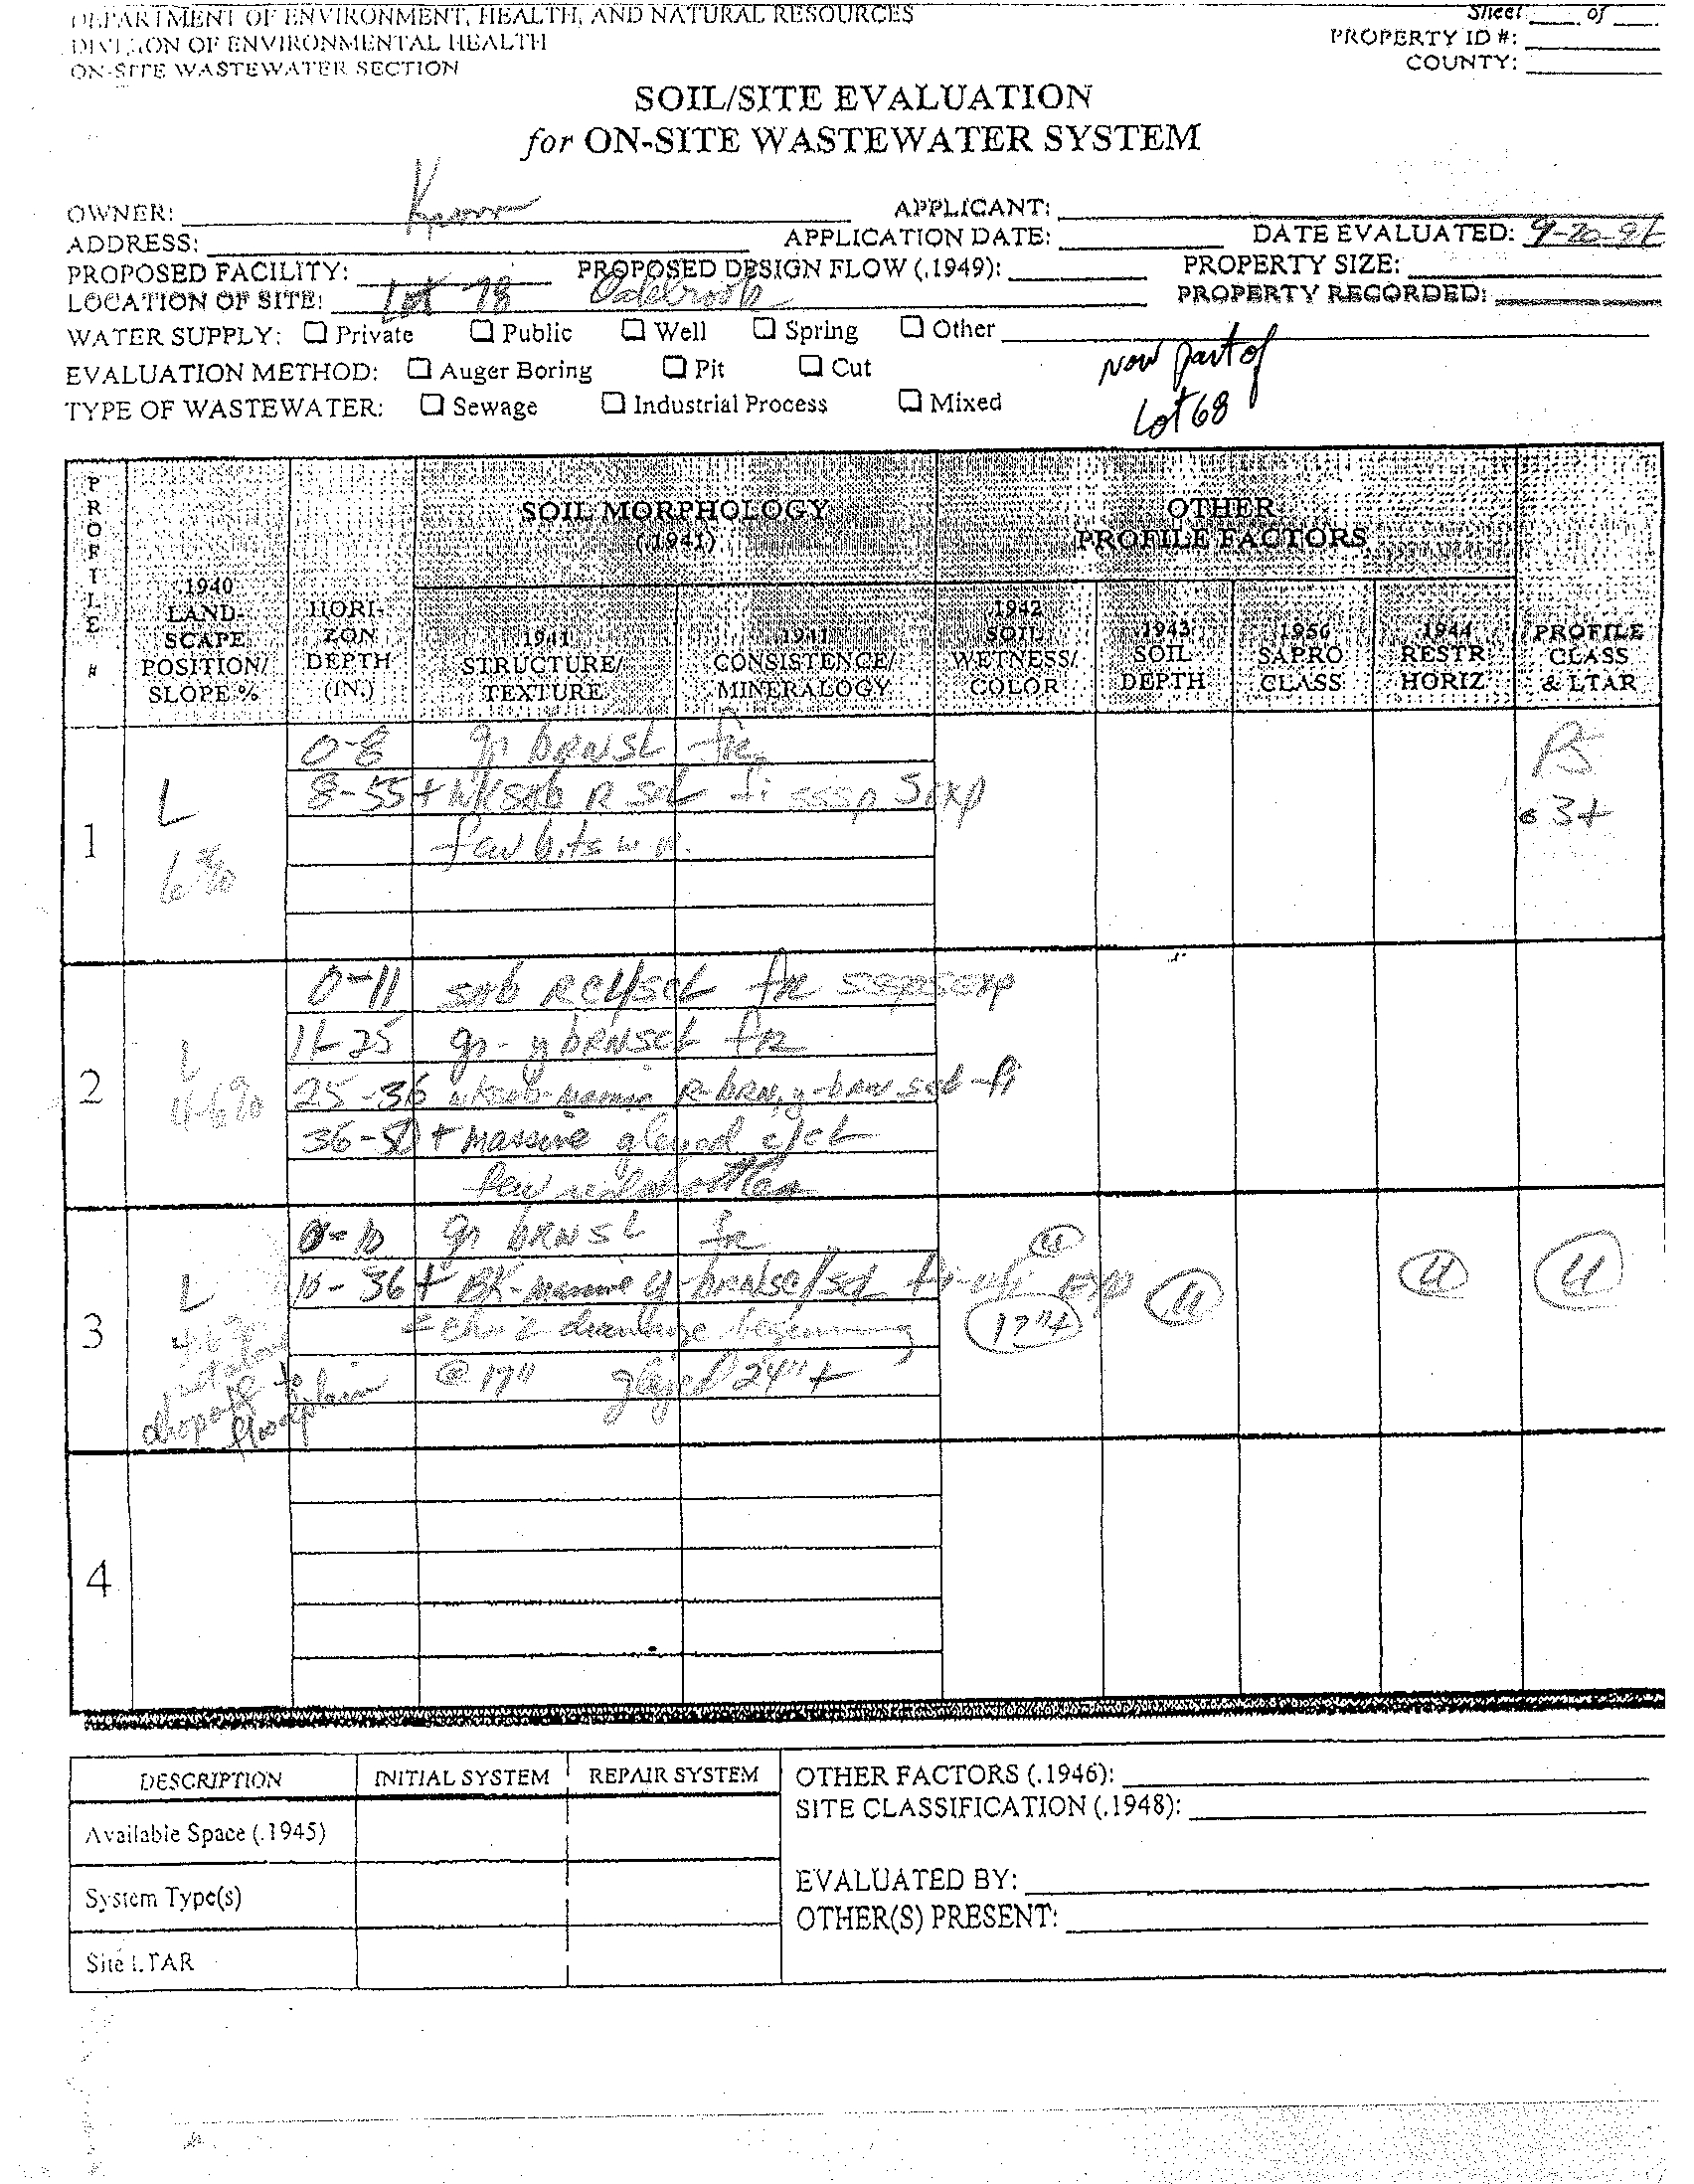 DEPARTMENT OF ENVIRONMENT, HEALTH, AND NATURAL RESOURCES
DIVISION OF ENVIRONMENTAL HEALTH
ON-SITE WASTEWATER SECTION
Sheet ____ of ____
PROPERTY ID #:
COUNTY:
SOIL/SITE EVALUATION
for ON-SITE WASTEWATER SYSTEM
OWNER:
APPLICANT:
ADDRESS:
APPLICATION DATE:
DATE EVALUATED: 9-20-96
PROPOSED FACILITY:
PROPOSED DESIGN FLOW (.1949):
PROPERTY SIZE:
LOCATION OF SITE: Lot 78 Oakbrook
PROPERTY RECORDED:
WATER SUPPLY: ☐ Private ☐ Public ☐ Well ☐ Spring ☐ Other
EVALUATION METHOD: ☐ Auger Boring ☐ Pit ☐ Cut
TYPE OF WASTEWATER: ☐ Sewage ☐ Industrial Process ☐ Mixed
Now part of
Lot 68
PROFILE #
.1940 LAND-SCAPE POSITION/ SLOPE %
HORI-ZON DEPTH (IN.)
SOIL MORPHOLOGY (.1941)
.1941 STRUCTURE/ TEXTURE
.1941 CONSISTENCE/ MINERALOGY
OTHER PROFILE FACTORS
.1942 SOIL WETNESS/ COLOR
.1943 SOIL DEPTH
.1956 SAPRO CLASS
.1944 RESTR HORIZ
PROFILE CLASS & LTAR
1
L
6%
0-8 gr BRN SL fr
8-55+ wk sbk R scl fi sssp sexp
few bits w.r.
PS
.3+
2
L
4-6%
0-11 sbk R cl/scl fr ssp sexp
11-25 gr - y BRN scl fr
25-36 R-BRN, y-brn scl - fi
36-50+ Massive gleyed c/cl
few mottles
3
L
4-6%
dropoff to floodplain
0-10 gr BRN SL fr
10-36+ BK-massive y-BRN sc/scl fi-vfi exp
chr 2 drainage beginning
@ 17" gleyed 24"+
U
17"
U
U
U
4
DESCRIPTION
INITIAL SYSTEM
REPAIR SYSTEM
Available Space (.1945)
System Type(s)
Site LTAR
OTHER FACTORS (.1946):
SITE CLASSIFICATION (.1948):
EVALUATED BY:
OTHER(S) PRESENT: